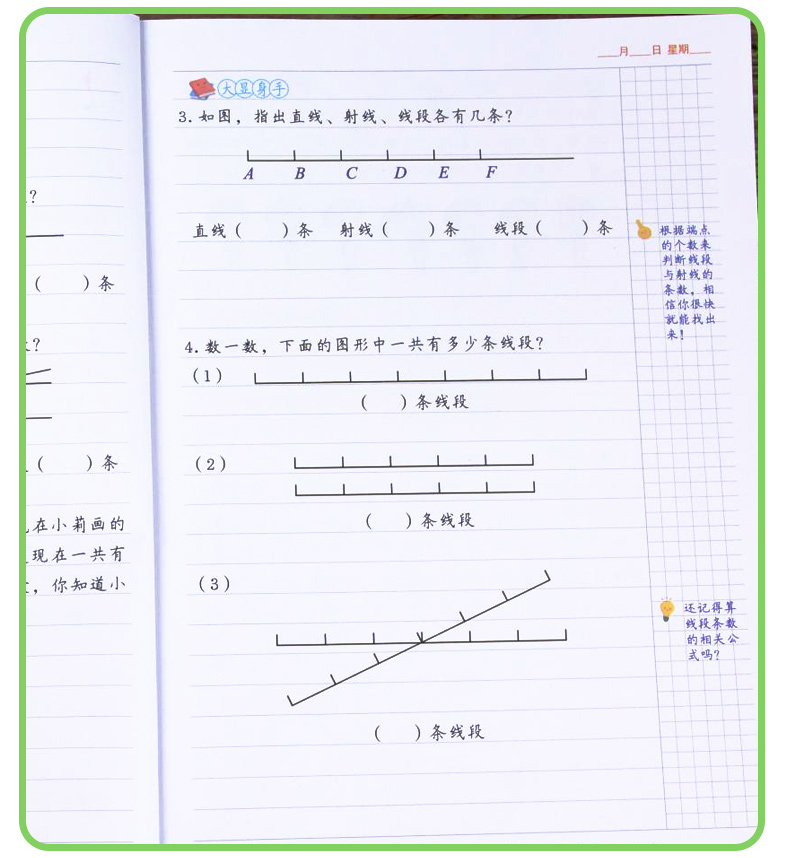 ____月____日 星期____
大显身手
3. 如图，指出直线、射线、线段各有几条？
A B C D E F
直线（ ）条 射线（ ）条 线段（ ）条
根据端点
的个数来
判断线段
与射线的
条数，相
信你很快
就能找出
来！
4. 数一数，下面的图形中一共有多少条线段？
（1）
（ ）条线段
（2）
（ ）条线段
（3）
（ ）条线段
还记得算
线段条数
的相关公
式吗？
？
（ ）条
？
（ ）条
在小莉画的
现在一共有
，你知道小